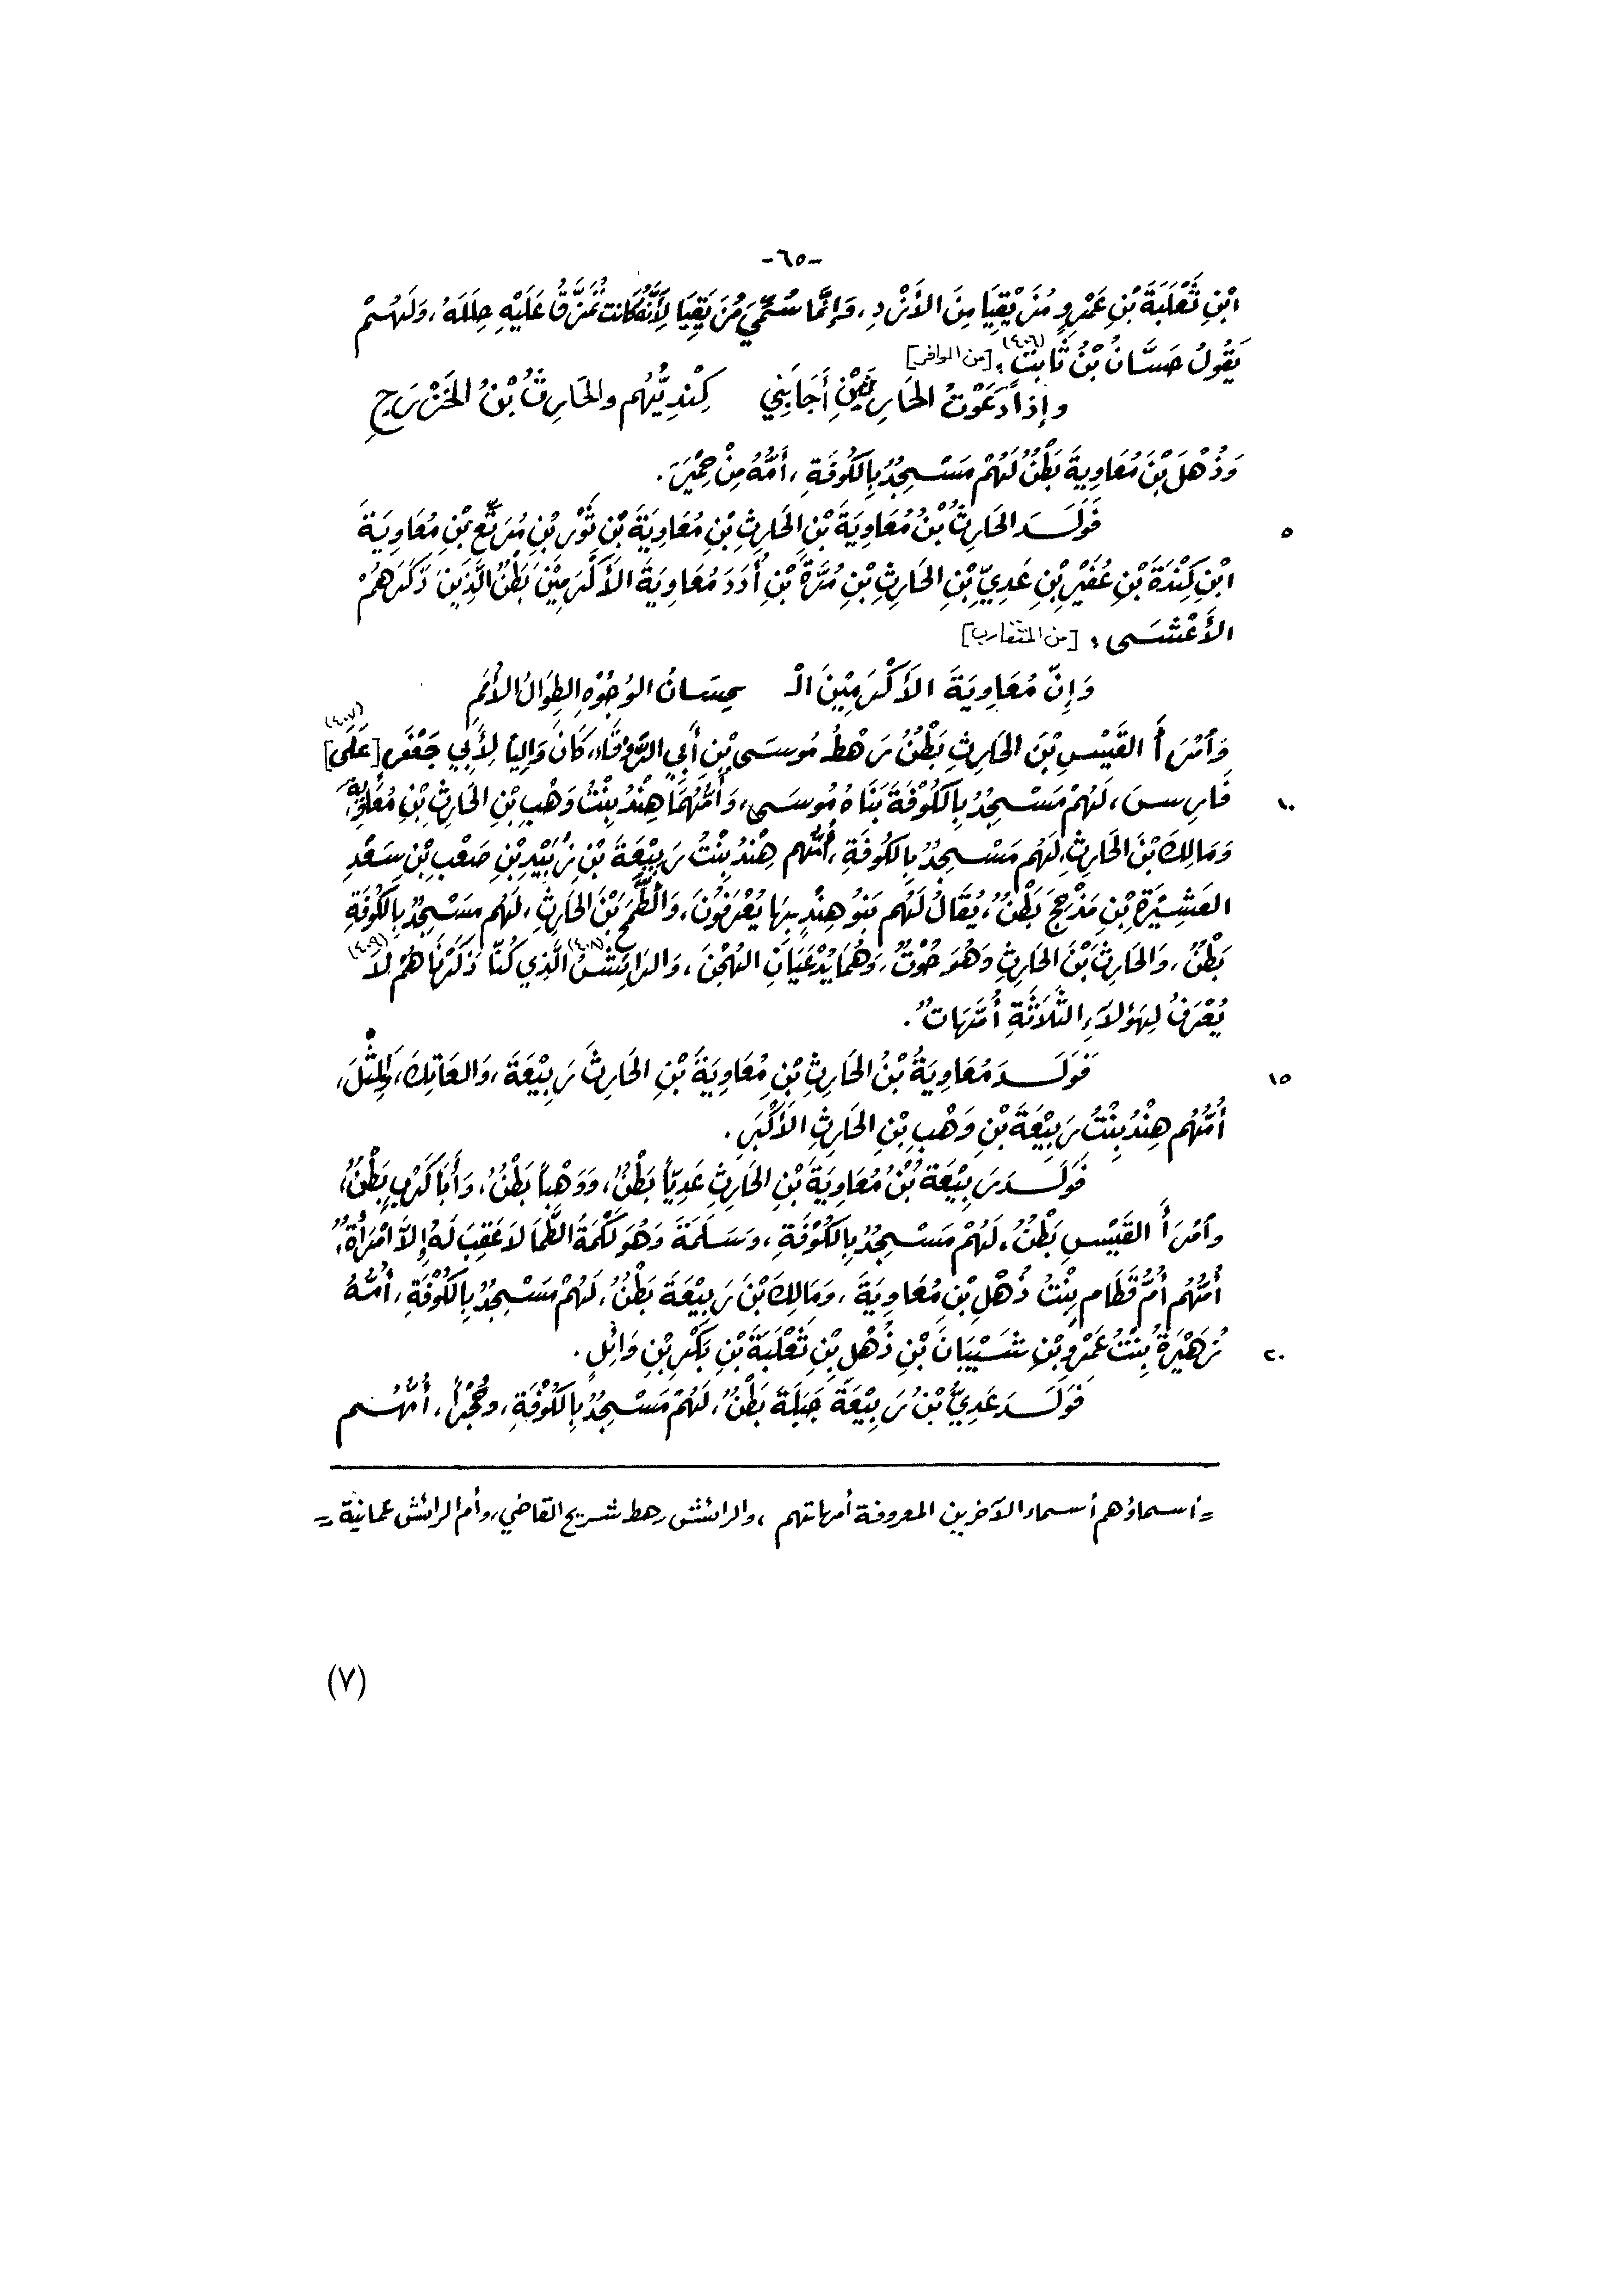 -٦٥-
ابْنِ ثَعْلَبَةَ بْنِ عَمْرٍو مُزَيْقِيَا مِنَ الأَزْدِ، وَإِنَّمَا سُمِّيَ مُزَيقِيَا لِأَنَّهُ كَانَت تُمَزَّقُ عَلَيْهِ حِلَلَهُ، وَلَهُمْ
يَقُولُ حَسَّانُ بْنُ ثَابِتٍ (٤٠٦): [من الوافر]
وإذا دَعَوْتُ الحَارِثَيْنِ أَجَابَنِي كِنْدِيُّهُم والحَارِثُ بْنُ الخَزْرَجِ
وَذُهْلَ بْنَ مُعَاوِيةَ بَطْنٌ لَهُمْ مَسْجِدٌ بِالكُوفَةِ، أُمُّهُ مِنْ حِمْيَرَ.
٥ فَوَلَدَ الحَارِثُ بْنُ مُعَاوِيَةَ بْنِ الحَارِثِ بْنِ مُعَاوِيَةَ بْنِ ثَوْرِ بْنِ مُرَتِّعِ بْنِ مُعَاوِيَةَ
ابْنِ كِنْدَةَ بْنِ عُفَيْرِ بْنِ عَدِيِّ بْنِ الحَارِثِ بْنِ مُرَّةَ بْنِ أُدَدَ مُعَاوِيَةَ الأَكْرَمِيْنَ بَطْنٌ الَّذِينَ ذَكَرَهُمْ
الأَعْشَى: [من المتقارب]
وَإِنَّ مُعَاوِيَةَ الأَكْرَمِيْنَ الْـ حِسَانُ الوُجُوْهِ الطِوَالُ الأُمَمِ
وَامْرَأَ القَيْسِ بْنَ الحَارِثِ بَطْنٌ رَهْطُ مُوسَى بْنِ أَبِي الرَّوْقَاءِ، كَانَ وَالِياً لِأَبِي جَعْفَرٍ [عَلَى] (٤٠٧)
١٠ فَارِسَ، لَهُمْ مَسْجِدٌ بِالكُوْفَةَ بَنَاهُ مُوسَى، وَأُمُّهُمَا هِنْدُ بِنْتُ وَهْبِ بْنِ الحَارِثِ بْنِ مُعَاوِيَةَ،
وَمَالِكَ بْنَ الحَارِثِ، لَهُم مَسْجِدٌ بِالكُوفَةِ، أُمُّهُم هِنْدُ بِنْتُ رَبِيْعَةَ بْنِ زُبَيْدِ بْنِ صَعْبِ بْنِ سَعْدِ
العَشِيْرَةِ بْنِ مَذْحِجَ بَطْنٌ، يُقَالُ لَهُم بَنُو هِنْدٍ بِهَا يُعْرَفُونَ، وَالطُّمَحَ بْنَ الحَارِثِ، لَهُم مَسْجِدٌ بِالكُوفَةِ
بَطْنٌ، وَالحَارِثَ بْنَ الحَارِثِ وَهُوَ حُوْتٌ، وَهُمَا يُدْعَيَانِ الهُجْنَ (٤٠٨)، وَالرَائِشُ الَّذِي كُنَّا ذَكَرْنَاهُمْ لاَ (٤٠٩)
يُعْرَفُ لِهَؤلاَءِ الثَّلاَثَةِ أُمَّهَاتٌ.
١٥ فَوَلَدَ مُعَاوِيَةُ بْنُ الحَارِثِ بْنِ مُعَاوِيَةَ بْنِ الحَارِثِ رَبِيْعَةَ، وَالعَاتِكَ، وَالمِثْلَ،
أُمُّهُم هِنْدُ بِنْتُ رَبِيْعَةَ بْنِ وَهْبِ بْنِ الحَارِثِ الأَكْبَرِ.
فَوَلَدَ رَبِيْعَةُ بْنُ مُعَاوِيَةَ بْنِ الحَارِثِ عَدِيّاً بَطْنٌ، وَوَهْباً بَطْنٌ، وَأَبَا كَرْبٍ بَطْنٌ،
وامْرَأَ القَيْسِ بَطْنٌ، لَهُمْ مَسْجِدٌ بِالكُوْفَةِ، وَسَلَمَةَ وَهُوَ لَكْمَةُ الظَّمَا لاَ عَقِبَ لَهُ إِلاَّ امْرَأَةٌ،
أُمُّهُم أُمُّ قَطَامِ بِنْتُ ذُهْلِ بْنِ مُعَاوِيَةَ، وَمَالِكَ بْنَ رَبِيْعَةَ بَطْنٌ، لَهُمْ مَسْجِدٌ بِالكُوْفَةِ، أُمُّهُ
٢٠ زُهَيْرَةُ بِنْتُ عَمْرِو بْنِ شَيْبَانَ بْنِ ذُهْلِ بْنِ ثَعْلَبَةَ بْنِ بَكْرِ بْنِ وَائِلٍ.
فَوَلَدَ عَدِيُّ بْنُ رَبِيْعَةَ جَبَلَةَ بَطْنٌ، لَهُمْ مَسْجِدٌ بِالكُوْفَةِ، وحُجْراً، أُمُّهُم
= أسماؤهم أسماء الآخرين المعروفة أمهاتهم، والرائش رهط شريح القاضي، وأم الرائش عمانية =
(٧)